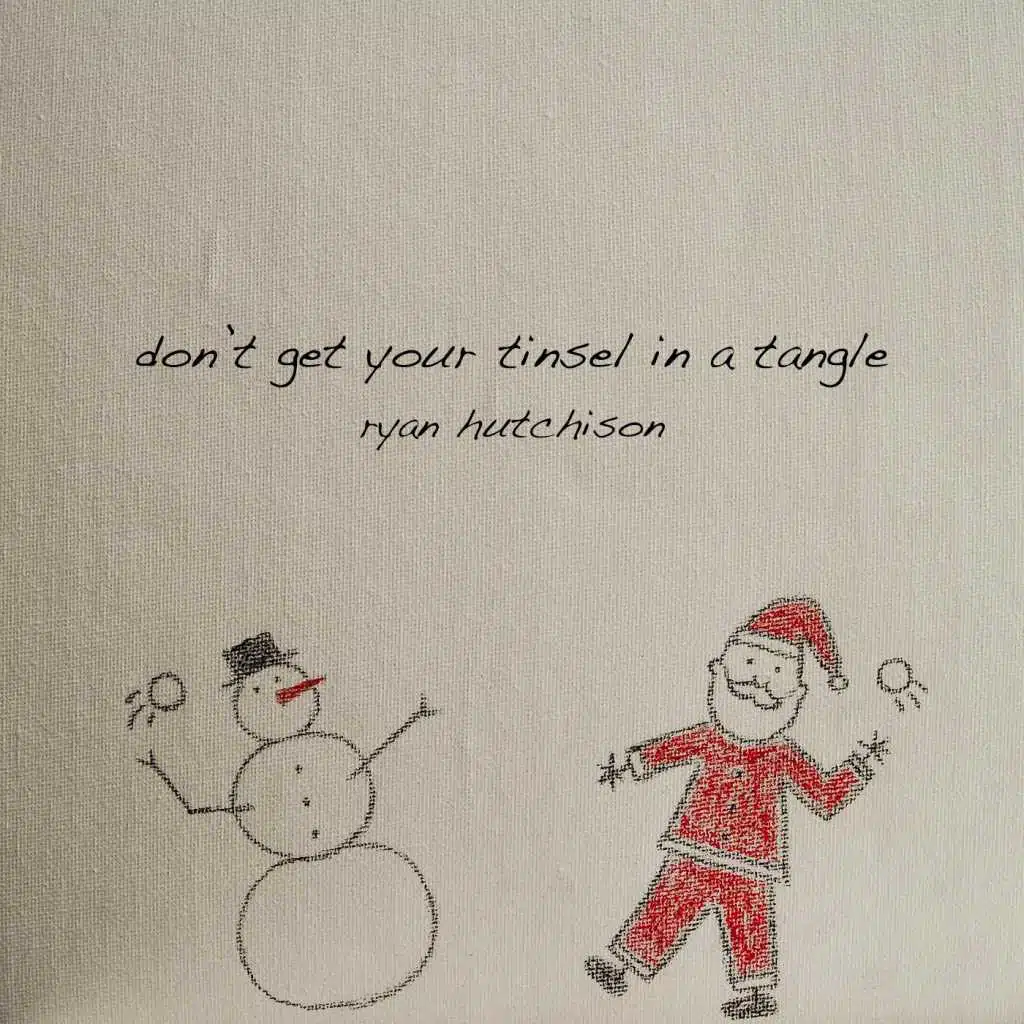 don't get your tinsel in a tangle
ryan hutchison